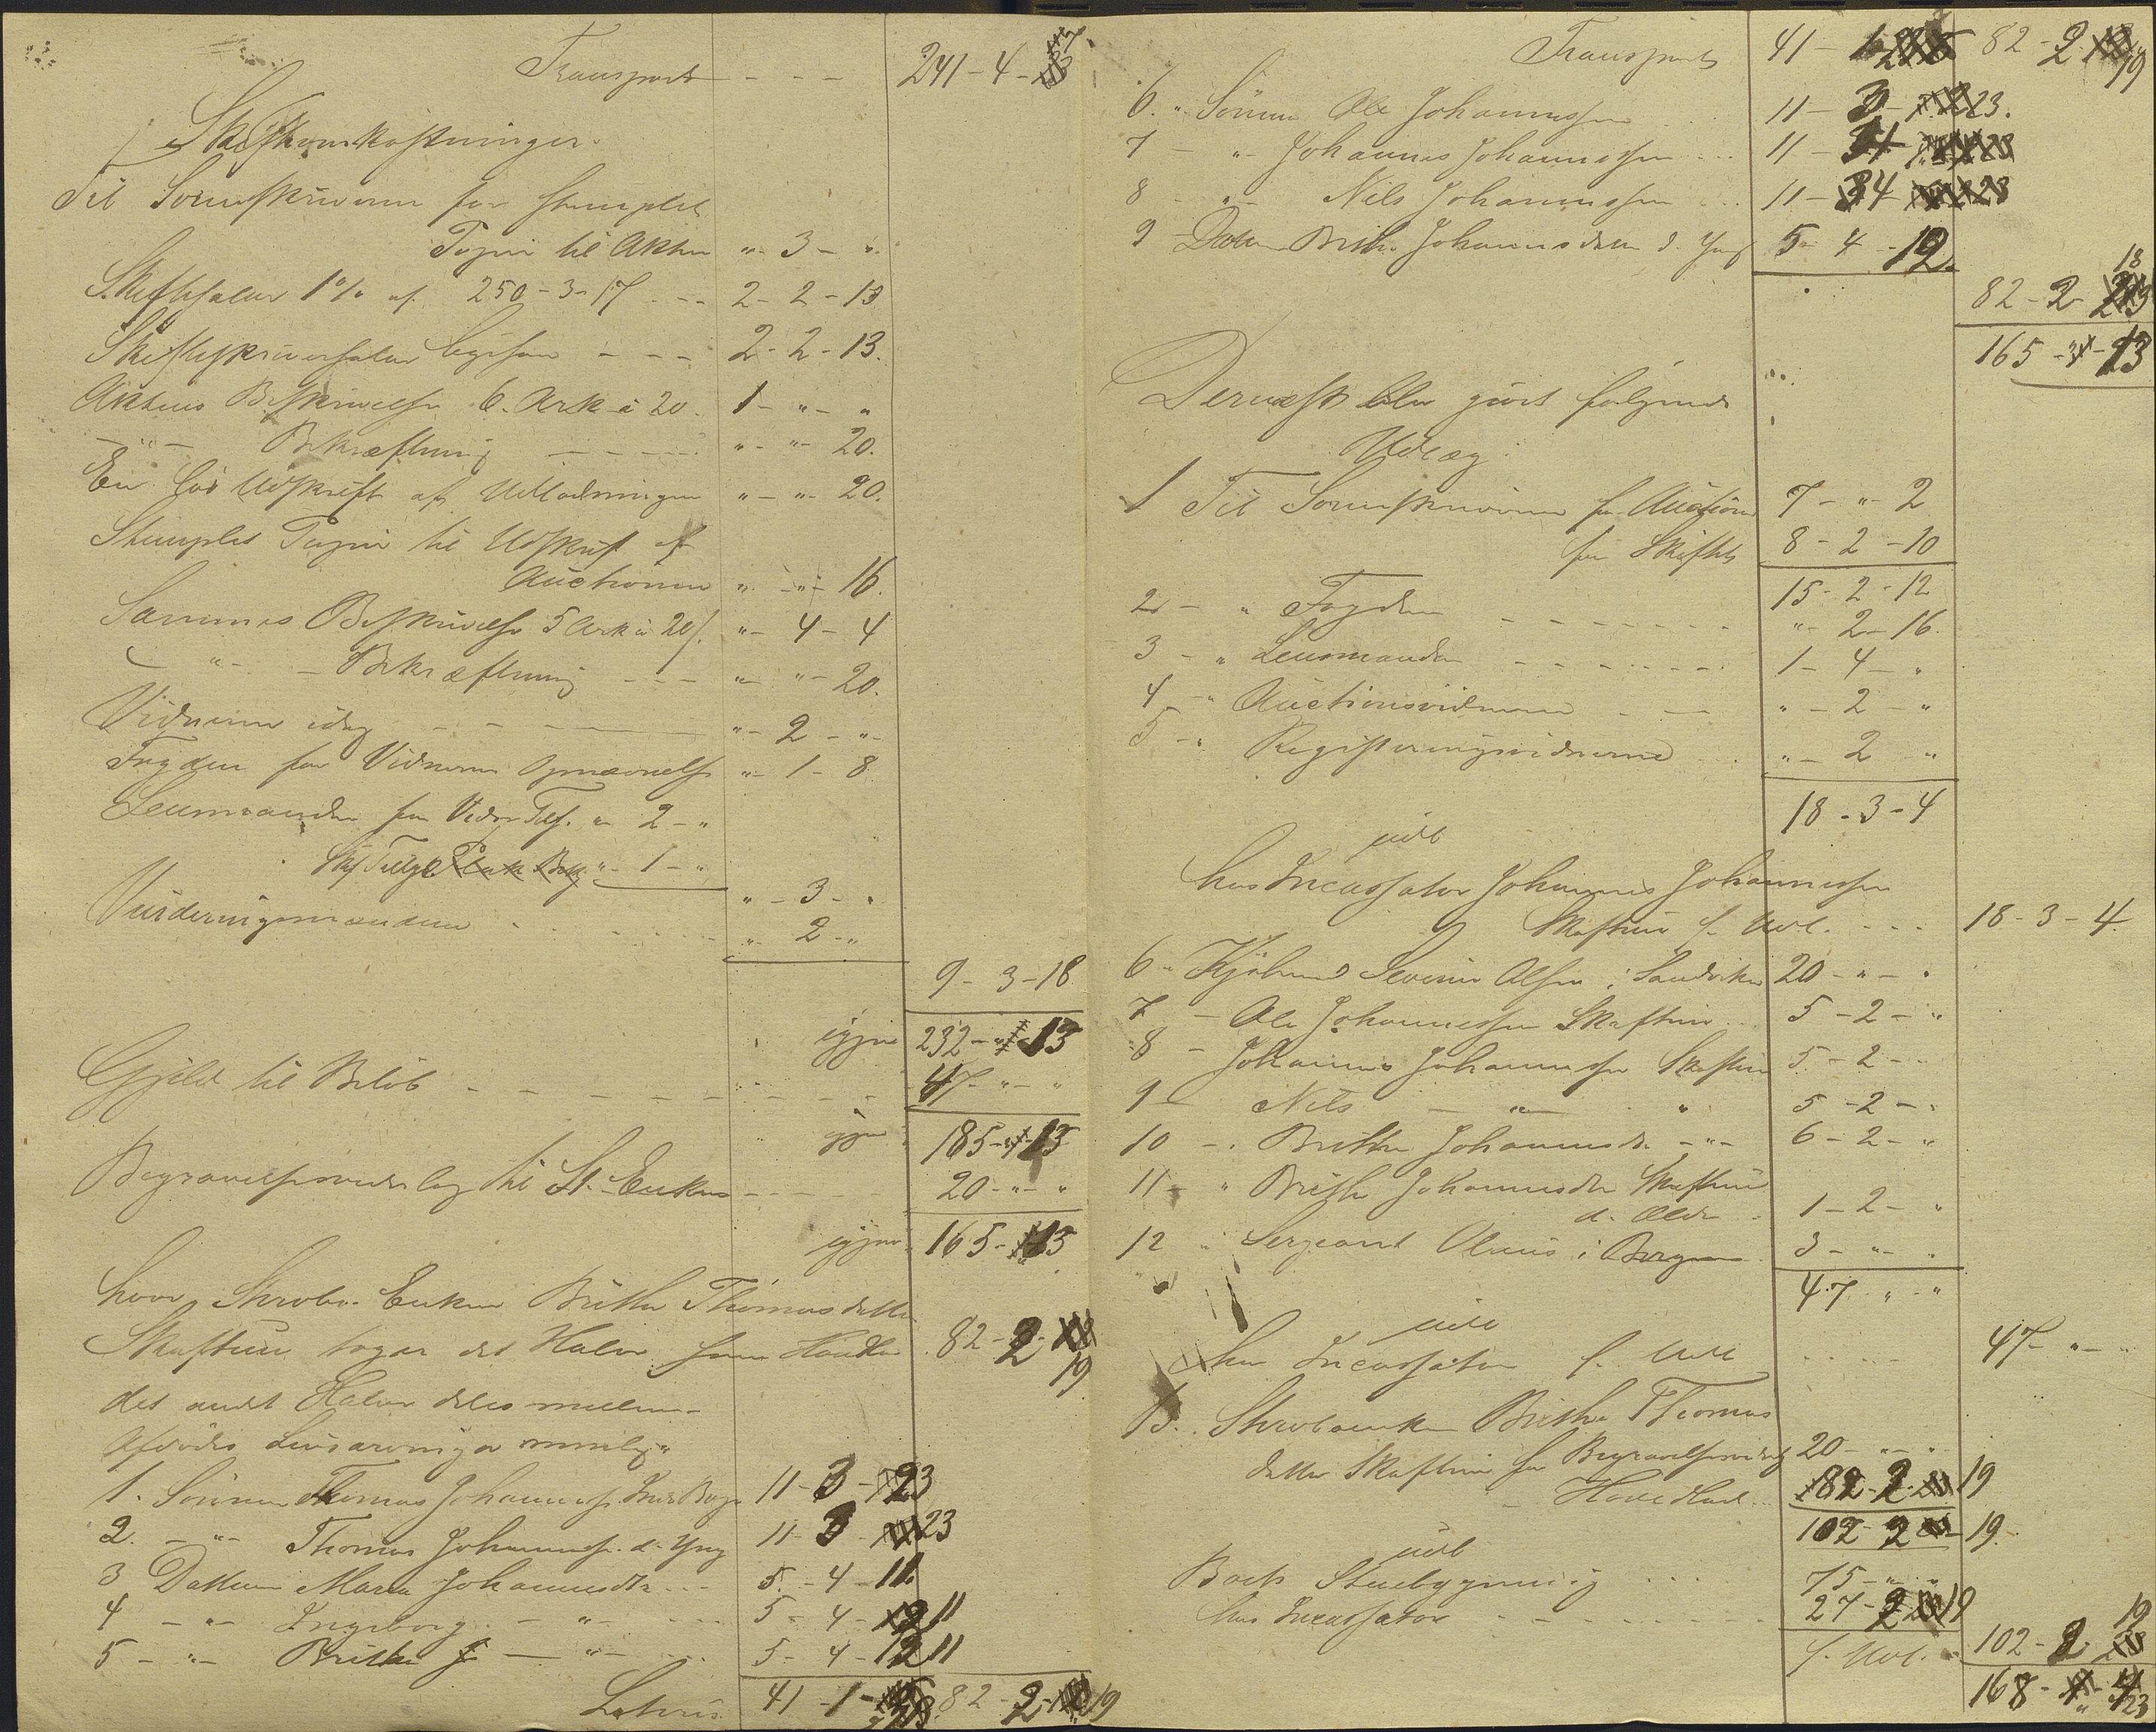 Transport - - - 241-4-7
Skifteomkostninger.
Til Sorenskriveren for stemplet
Papir til Akten " - 3 - "
Skiftesalær 1% af 250-3-17 - - 2-2-13
Skifteskriversalær ligesaa - - - 2-2-13.
Aktens Beskrivelse 6. Ark à 20. 1 - " - "
- " - Bekræftning - - - - - " - " - 20.
En løs Udskrift af Udlodningen " - " - 20.
Stemplet Papir til Udskrift af
Auctionen " - " - 16.
Sammes Beskrivelse 5 Ark à 20 " - 4 - 4
- " - - Bekræftning - - - " - " - 20.
Vidnerne idag - - - " - 2 - "
Fogden for Vidnernes Opnævnelse " - 1 - 8
Lensmanden for Vidn Tils. " 2 - "
Skif Tilsyl. " - 1 - "
" - 3 - "
Vurderingsmændene " - 2 - "
9 - 3 - 18
igjen 232 - " - 13
Gjæld til Beløb - - - - 47 - " - "
igjen 185 - " - 13
Begravelsesvederlag til St. Enken - - - 20 - " - "
igjen 165 - " - 13
hvor Stervbo. Enken Brithe Thomasdatter
Skaftun tager det Halve som Hovedlod 82 - 2 - 19
det andet Halve deles mellem
Afdødes Livsarvinger nemlig
1. Sønnen Thomas Johanness. 11 - 3 - 23
2. - " - Thomas Johanness. d. Yng 11 - 3 - 23
3 Datteren Marta Johannesdtr. - - 5 - 4 - 11.
4 - " - Ingeborg - " - - - 5 - 4 - 11
5 - " - Brithe - " - 5 - 4 - 11
Lateris 41 - 1 - 82 - 2 - 19
Transport 41 - 1 82 - 2 - 19
6. " Sønnen Ole Johannessen 11 - 3 - 23.
7 - " - Johannes Johannessen - - 11 - 4
8 - " - Nils Johannessen - - 11 - 4
9 - Datter Brithe Johannesdatter d. Yng 5 - 4 - 12.
82 - 2 - 18
165 - " - 13
Dernæst blev gjort følgende
Udlæg
1 Til Sorenskriveren for Auctionen 7 - " - 2
for Skiftet 8 - 2 - 10
15 - 2 - 12
2 - " Fogden - - - - - " - 2 - 16.
3 - " Lensmanden - - - - - 1 - 4 - "
4 - " Auctionsvidnerne - - " - 2 - "
5 - " Registeringsvidnerne " - 2 - "
18 - 3 - 4
udl
hos Incassator Johannes Johannessen
Skaftun f. Udl. - - - 18 - 3 - 4.
6 - Kjøbmand Severin Olsen i Sandviken 20 - " - "
7 - Ole Johannessen Skaftun 5 - 2 - "
8 - Johannes Johannessen Skaftun 5 - 2 - "
9 - Nils - " - " 5 - 2 - "
10 - " Brithe Johannesdtr - " - 6 - 2 - "
11 - " Brithe Johannesdtr Skaftun
d. Ældr 1 - 2 - "
12 " Sergeant Olaus i Bergen 3 - " - "
47 - " - "
udl
hos Incassator f. Udl - - - 47 - " - "
13. Stervboenken Brithe Thomas
datter Skaftun for Begravelsesvederlag 20 - " - "
- Hovedlod - - 82 - 2 - 19
102 - 2 - 19.
udl
Boets Stuebygning - - - 75 - " - "
hos Incassator - - - - - 27 - 2 - 19
f. Udl. 102 - 2 - 19
168 - " - 23